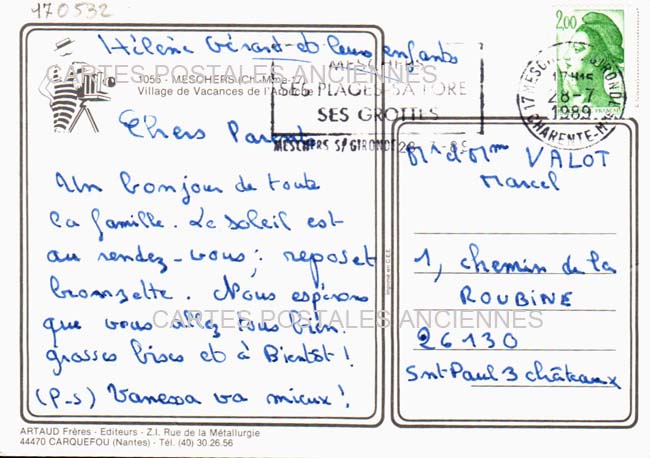 170532
Hélène Gérard et leurs enfants
CARTES POSTALES ANCIENNES
1056 - MESCHERS (CH-Mme-17)
Village de Vacances de
MESCHERS
SES PLAGES SA FORE
SES GROTTES
MESCHERS S/ GIRONDE 28-7-89
2,00
17 MESCHERS S/ GIRONDE
17H15
28-7
1989
CHARENTE-Mme
Chers Parents
Un bonjour de toute
la famille. Le soleil est
au rendez-vous : repos et
bronzette. Nous espérons
que vous allez tous bien.
grosses bises et à Bientôt !
(P-S) Vanessa va mieux !
CARTES POSTALES ANCIENNES
Imprimé en C.E.E.
Mr et Mme VALOT
Marcel
1, chemin de la
ROUBINE
26130
Snt-Paul 3 châteaux
ARTAUD Frères - Editeurs - Z.I. Rue de la Métallurgie
44470 CARQUEFOU (Nantes) - Tél. (40) 30.26.56